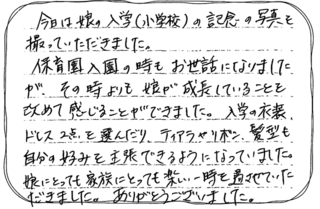 今日は娘の入学(小学校)の記念の写真を
撮っていただきました。
保育園入園の時もお世話になりました
が、その時よりも娘が成長していることを
改めて感じることができました。入学の衣装、
ドレス2点を選んだり、ティアラやリボン、髪型も
自分の好みを主張できるようになっていました。
娘にとっても家族にとっても楽しい一時を過させていた
だきました。ありがとうございました。